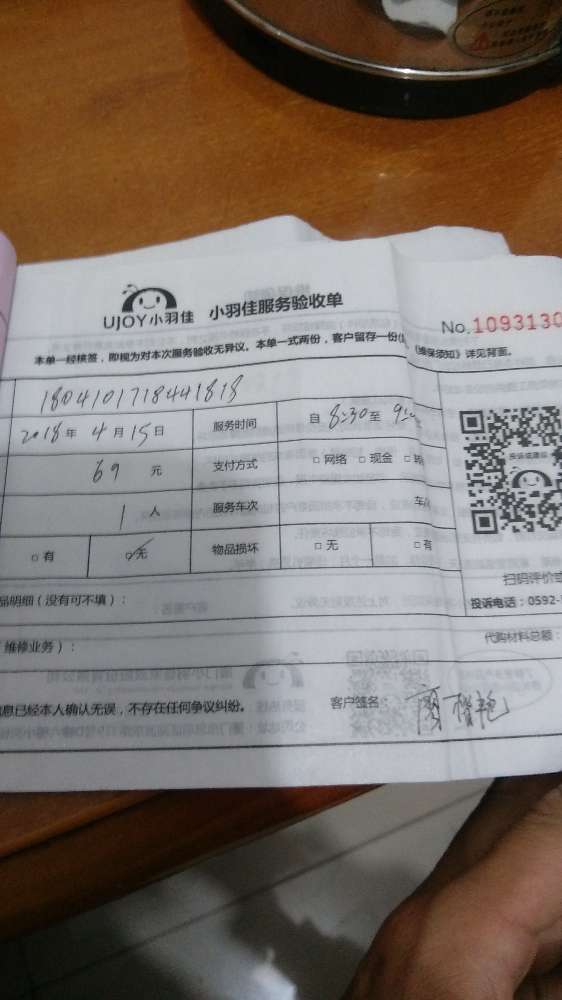 UJOY小羽佳 小羽佳服务验收单
No.1093130
本单一经核签，即视为对本次服务验收无异议。本单一式两份，客户留存一份 《维保须知》详见背面。
1804101718441818
2018年4月15日 服务时间 自8:30至
69元 支付方式 □网络 □现金 □
投诉或建议
1人 服务车次 车/
□有 □无 物品损坏 □无 □有
扫码评价或
品明细（没有可不填）：
投诉电话：0592-
维修业务）：
代购材料总额：
息已经本人确认无误，不存在任何争议纠纷。 客户签名：